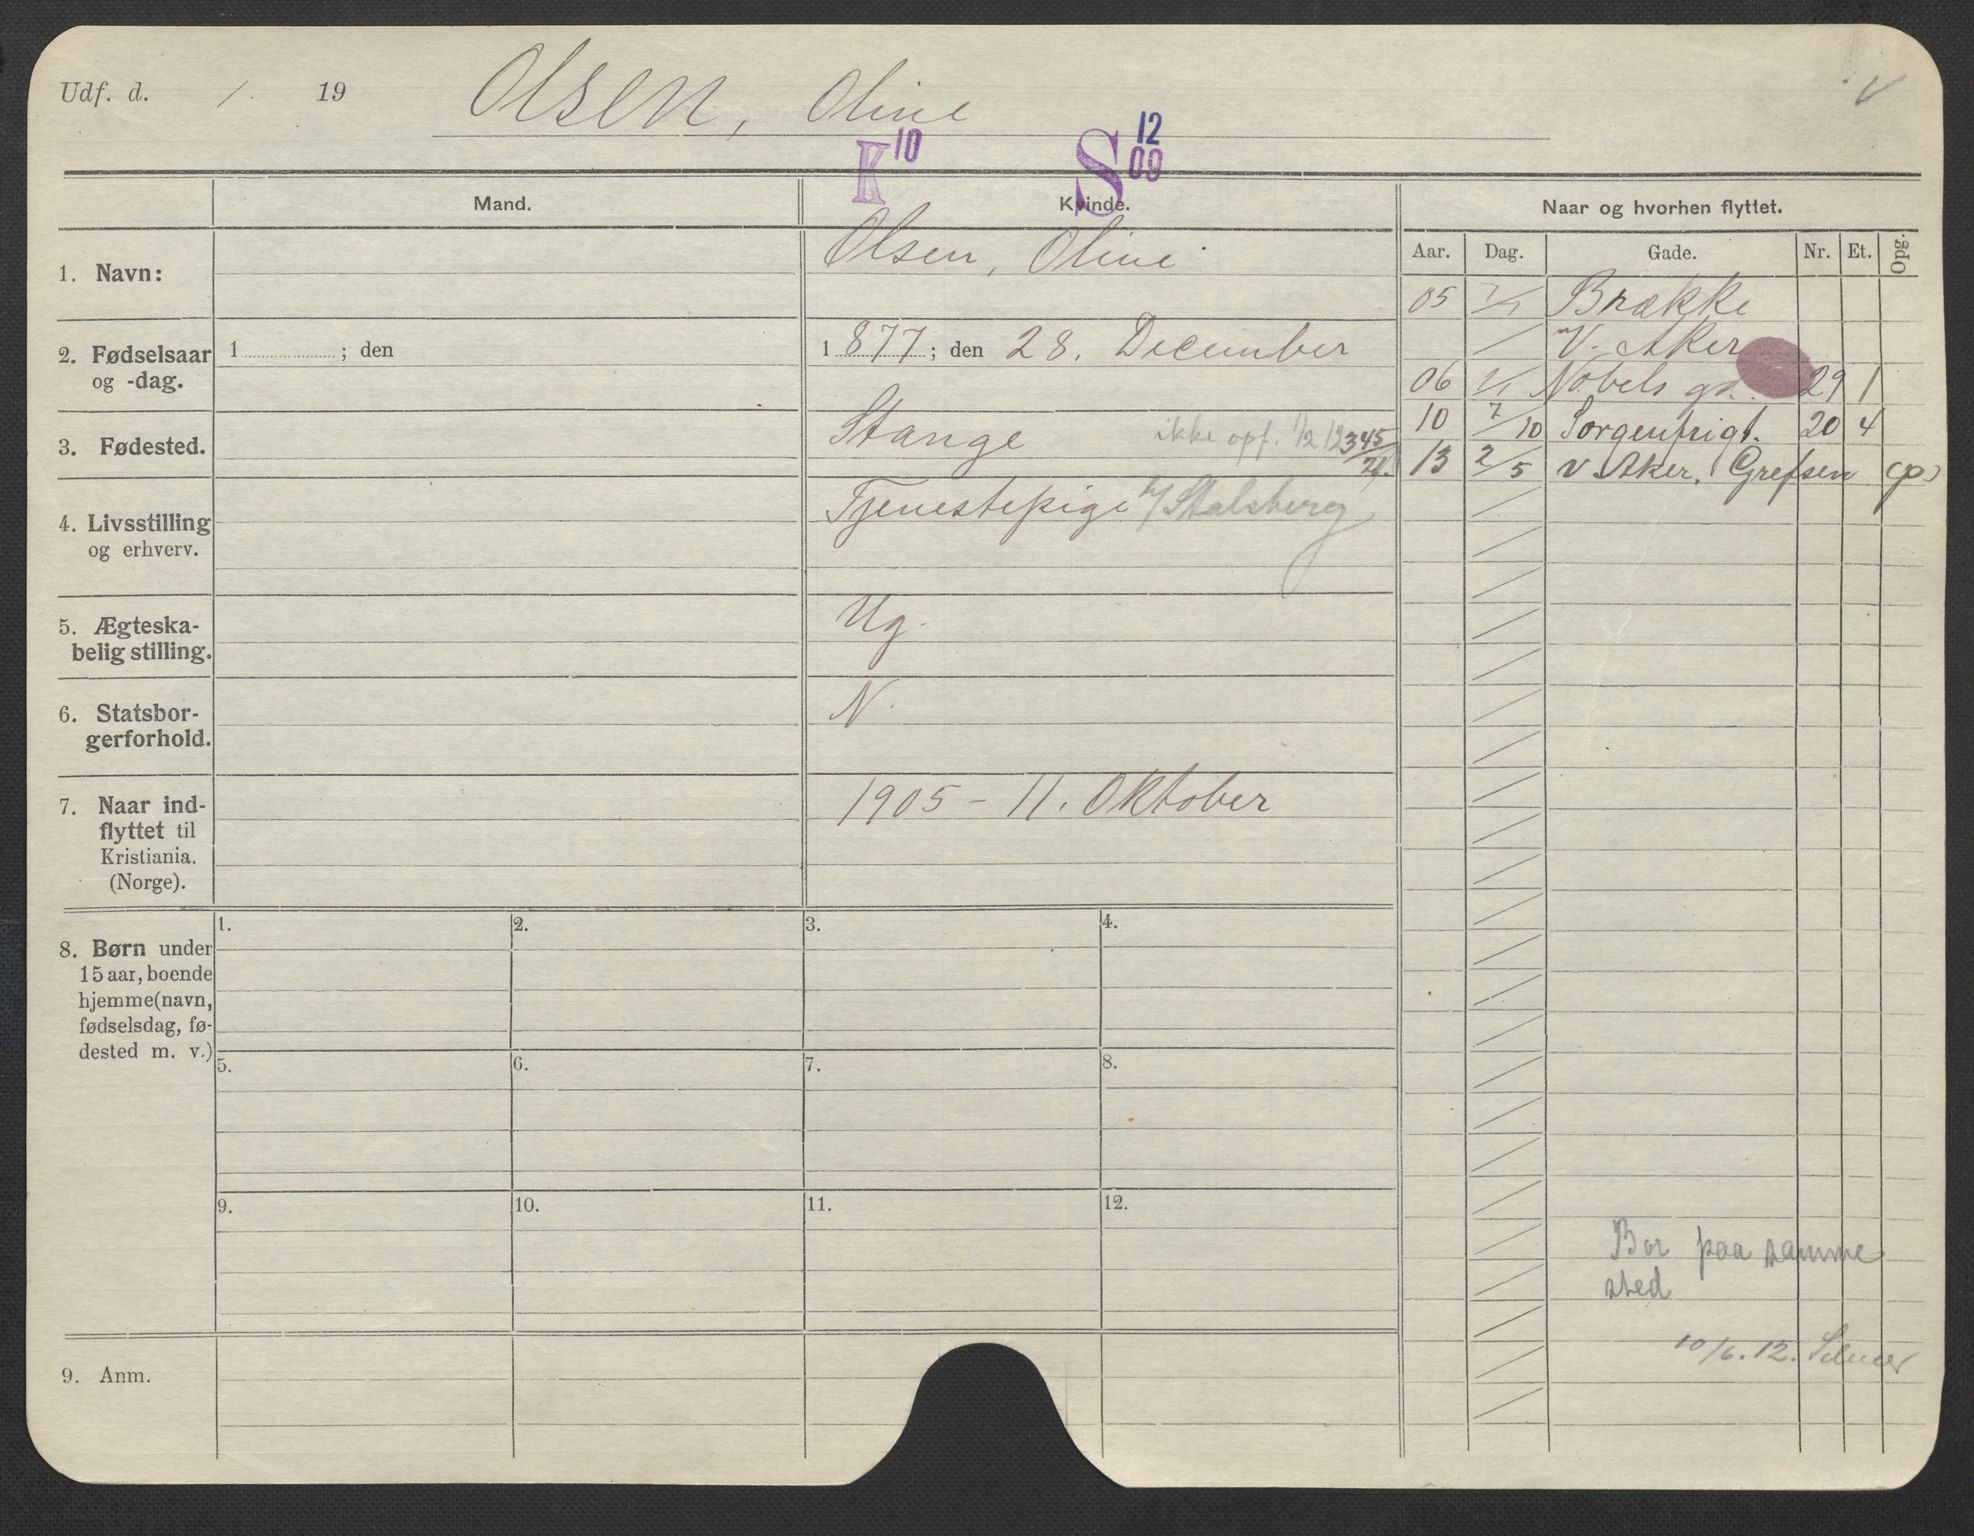 Udf. d. / 19
Olsen, Oline
K 10
S 12 09
Mand.
Kvinde.
Naar og hvorhen flyttet.
Aar. Dag. Gade. Nr. Et. Opg.
1. Navn:
Olsen, Oline
2. Fødselsaar
og -dag.
1 ; den
1 877 ; den 28. December
3. Fødested.
Stange
ikke opf.
4. Livsstilling
og erhverv.
Tjenestepige h/ Stalsberg
5. Ægteska-
belig stilling.
Ug.
6. Statsbor-
gerforhold.
N.
7. Naar ind-
flyttet til
Kristiania.
(Norge).
1905 - 11. Oktober
8. Børn under
15 aar, boende
hjemme (navn,
fødselsdag, fø-
dested m. v.)
1. 2. 3. 4.
5. 6. 7. 8.
9. 10. 11. 12.
9. Anm.
05 Brække
V. Aker
06 Nobels gd. 29 1
10 7/10 Sorgenfrigt. 20 4
13 2/5 V Aker, Grefsen (p)
Bor paa samme
sted
10/6. 12.